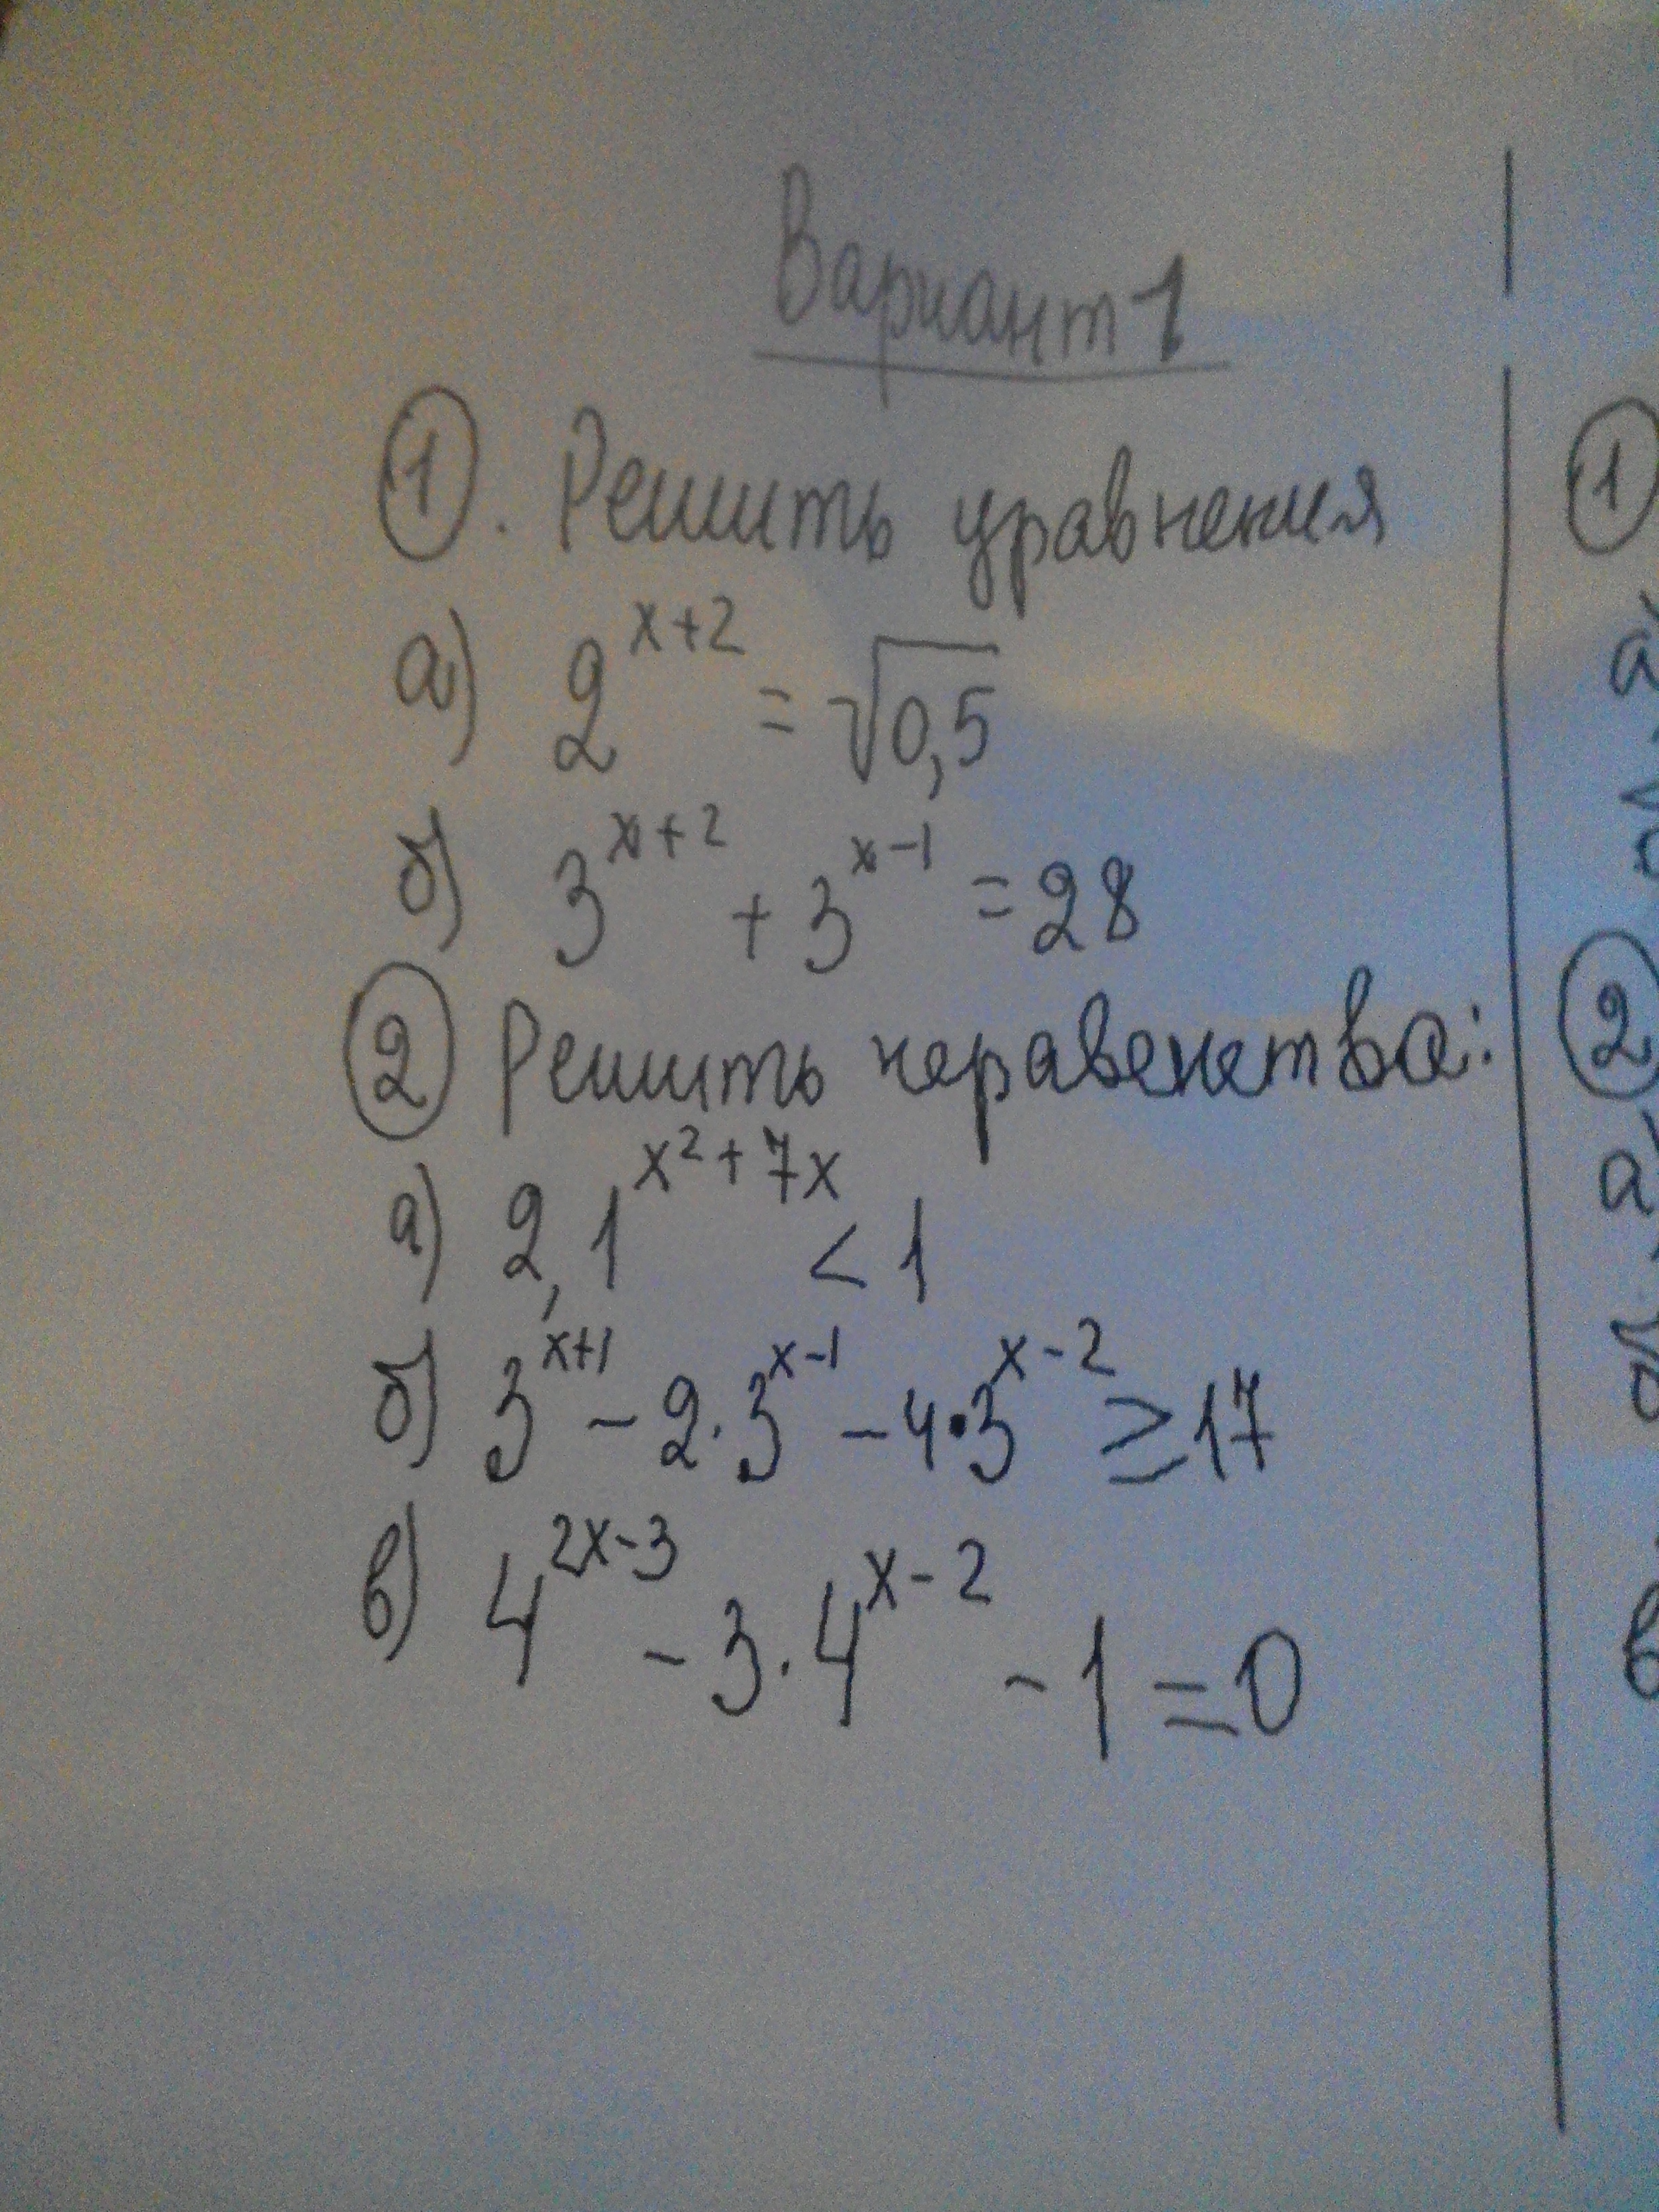 Вариант 1
1. Решить уравнения
а) 2^{x+2} = √0,5
б) 3^{x+2} + 3^{x-1} = 28
2 Решить неравенства:
а) 2,1^{x²+7x} < 1
б) 3^{x+1} - 2·3^{x-1} - 4·3^{x-2} ≥ 17
в) 4^{2x-3} - 3·4^{x-2} - 1 = 0
1
а)
2
а)
б
в